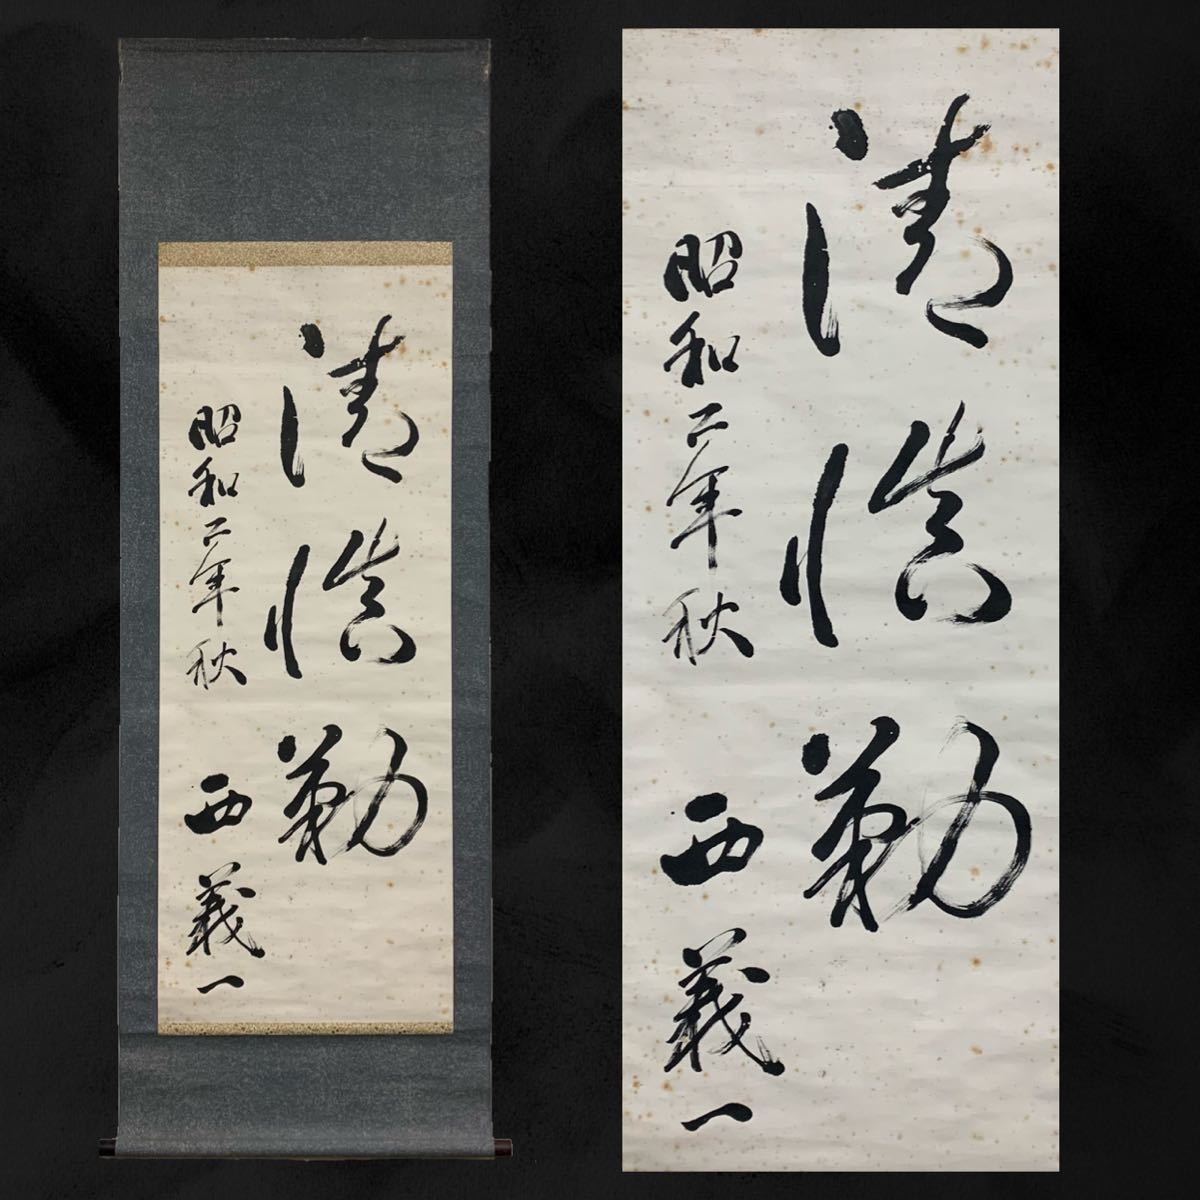 清慎勤
昭和二年秋 西義一
清慎勤
昭和二年秋 西義一